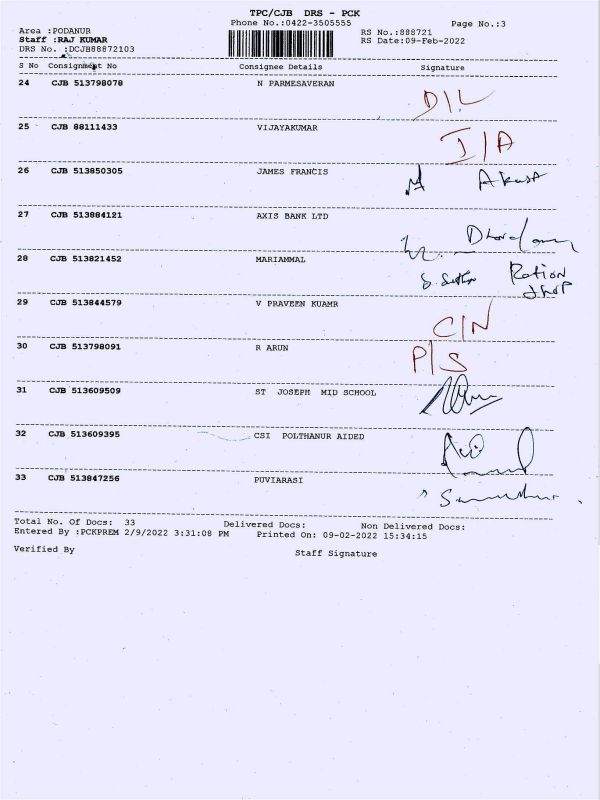 TPC/CJB DRS - PCK
Phone No.:0422-3505555
Page No.:3
Area :PODANUR
RS No.:888721
Staff :RAJ KUMAR
RS Date:09-Feb-2022
DRS No. :DCJB88872103
S No Consignment No Consignee Details Signature
24 CJB 513798078 N PARMESAVERAN D/L
25 CJB 88111433 VIJAYAKUMAR I/A
26 CJB 513850305 JAMES FRANCIS
27 CJB 513884121 AXIS BANK LTD
28 CJB 513821452 MARIAMMAL Ration
shop
29 CJB 513844579 V PRAVEEN KUAMR C/N
30 CJB 513798091 R ARUN P/S
31 CJB 513609509 ST JOSEPH MID SCHOOL
32 CJB 513609395 CSI POLTHANUR AIDED
33 CJB 513847256 PUVIARASI
Total No. Of Docs: 33 Delivered Docs: Non Delivered Docs:
Entered By :PCKPREM 2/9/2022 3:31:08 PM Printed On: 09-02-2022 15:34:15
Verified By Staff Signature